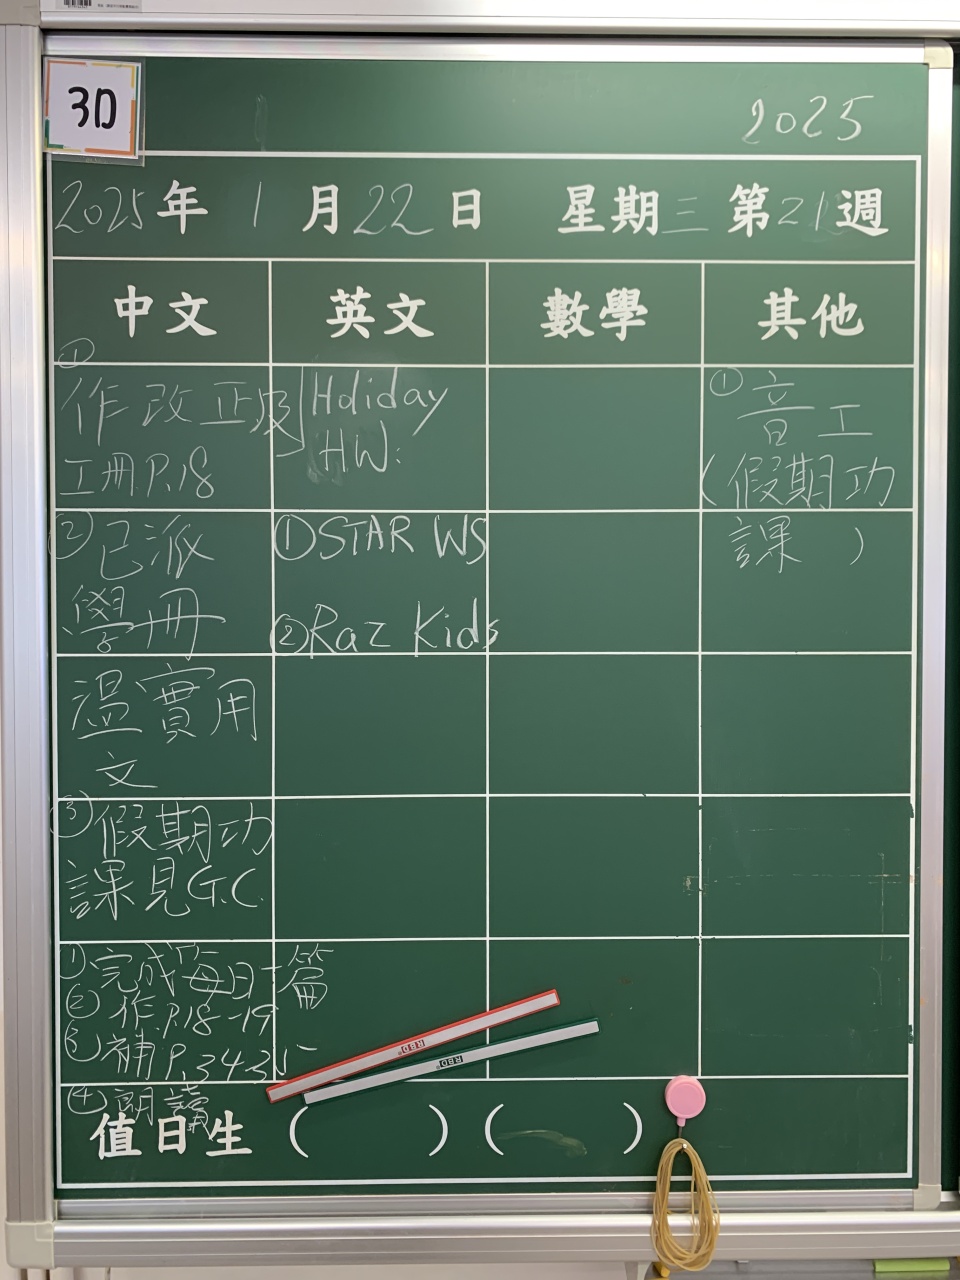 3D
2025
2025年 1月22日 星期三 第21週
中文 英文 數學 其他
①
作改正及
工冊P.18
②已派
學冊
溫實用
文
③假期功
課見G.C.
①完成每日一篇
②作P.18-19
③補P.34-35
④朗讀
Holiday
HW:
①STAR WS
②Raz Kids
①音工
(假期功
課)
值日生 ( ) ( )
RBD
RBD